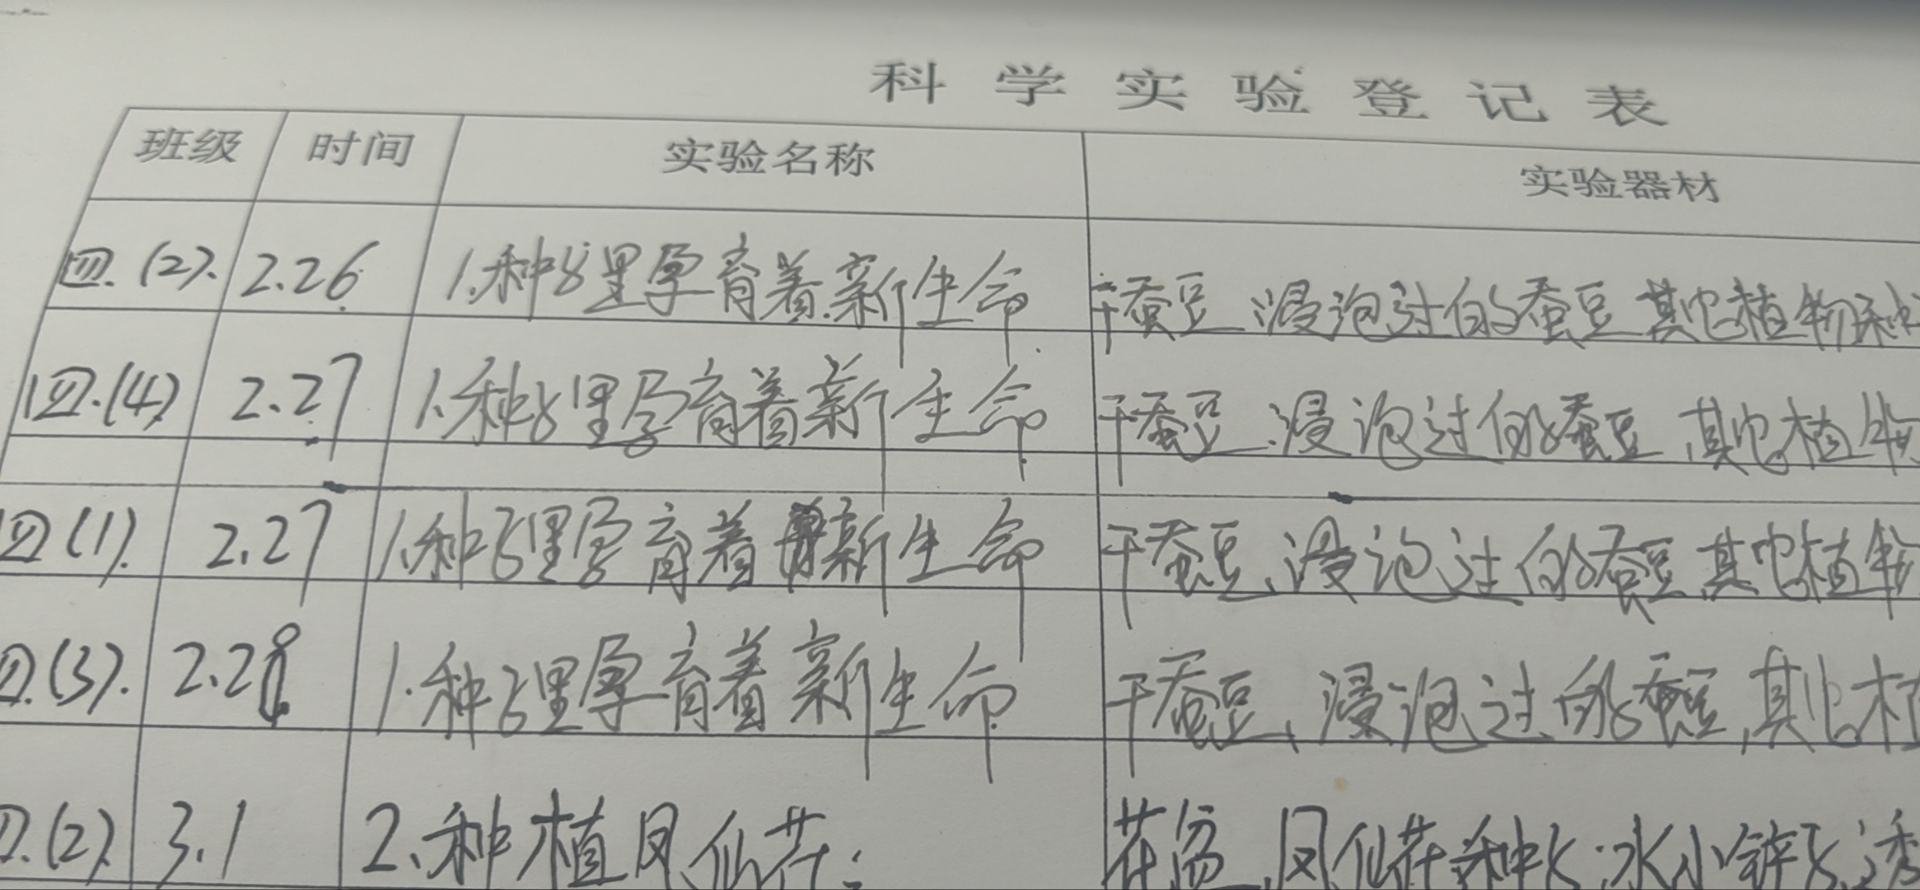 科学实验登记表
班级 时间 实验名称 实验器材
四.(2). 2.26 1.种子里孕育着新生命 干蚕豆、浸泡过的蚕豆 其它植物种
四.(4) 2.27 1.种子里孕育着新生命 干蚕豆、浸泡过的蚕豆 其它植物
四(1). 2.27 1.种子里孕育着新生命 干蚕豆、浸泡过的蚕豆 其它植物
四.(3). 2.28 1.种子里孕育着新生命 干蚕豆、浸泡过的蚕豆、其它植
四.(2) 3.1 2.种植凤仙花. 花盆、凤仙花种子.水小铲子.透